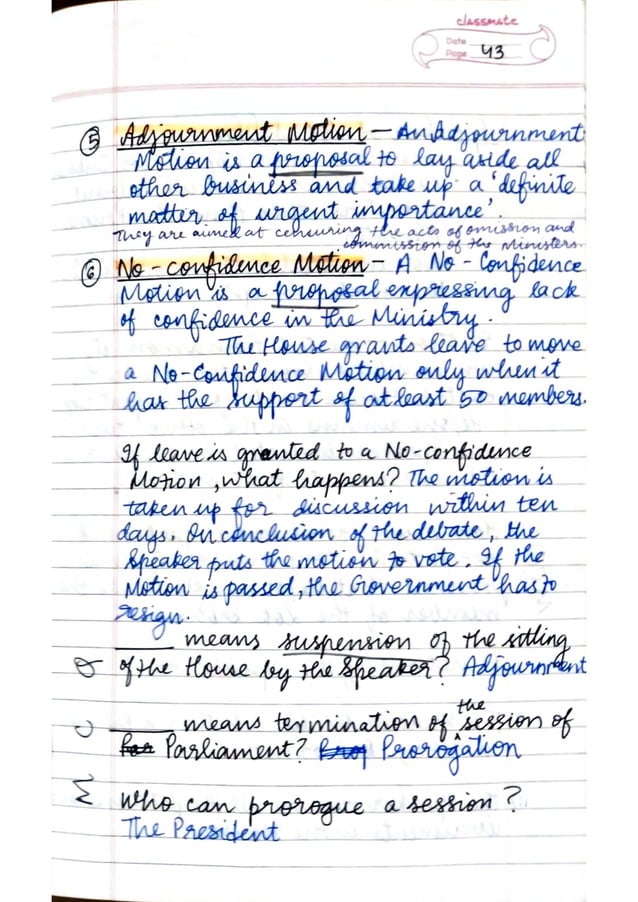 classmate
Date
Page 43
⑤ Adjournment Motion – An Adjournment
Motion is a proposal to lay aside all
other business and take up a 'definite
matter of urgent importance'.
They are aimed at censuring the acts of omission and
commission of the Ministers.
⑥ No-confidence Motion – A No-Confidence
Motion is a proposal expressing lack
of confidence in the Ministry.
The House grants leave to move
a No-Confidence Motion only when it
has the support of atleast 50 members.
If leave is granted to a No-confidence
Motion, what happens? The motion is
taken up for discussion within ten
days. On conclusion of the debate, the
Speaker puts the motion to vote. If the
Motion is passed, the Government has to
resign.
_____ means suspension of the sitting
of the House by the Speaker? Adjournment
_____ means termination of the session of
Parliament? Prorogation
Who can prorogue a session?
The President